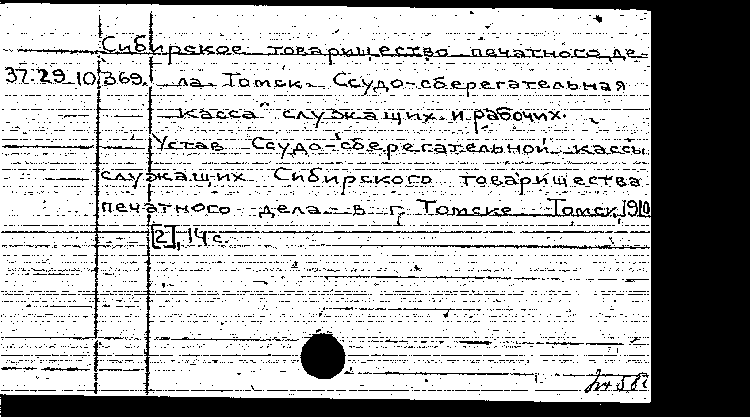 Сибирское товарищество печатного де-
37.29.10.369. ла. Томск. Ссудо-сберегательная
касса служащих и рабочих.
Устав Ссудо-сберегательной кассы
служащих Сибирского товарищества
печатного дела в г. Томске. Томск, 1910
[2], 14 с.